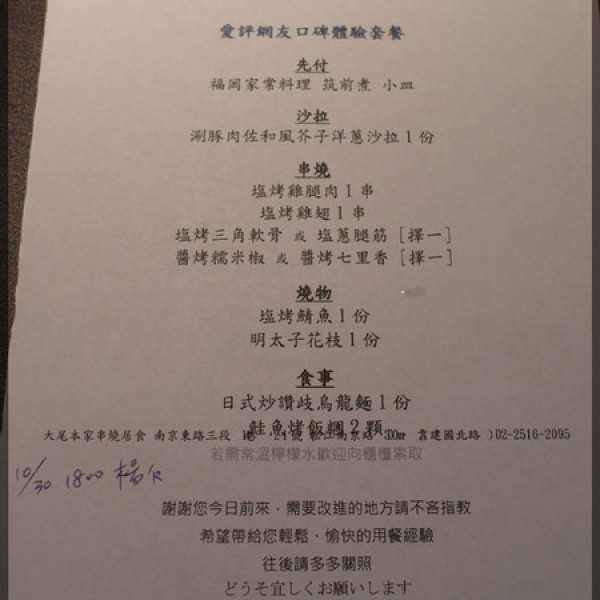 愛評網友口碑體驗套餐
先付
福岡家常料理 筑前煮 小皿
沙拉
涮豚肉佐和風芥子洋蔥沙拉1份
串燒
塩烤雞腿肉1串
塩烤雞翅1串
塩烤三角軟骨 或 塩蔥腿筋 [擇一]
醬烤糯米椒 或 醬烤七里香 [擇一]
燒物
塩烤鯖魚1份
明太子花枝1份
食事
日式炒讚歧烏龍麵1份
鮭魚烤飯糰2顆
大尾本家串燒居食 南京東路三段 號 靠建國北路 )02-2516-2095
若需常溫檸檬水歡迎向櫃檯索取
10/30 1800 楊
謝謝您今日前來，需要改進的地方請不吝指教
希望帶給您輕鬆、愉快的用餐經驗
往後請多多關照
どうぞ宜しくお願いします